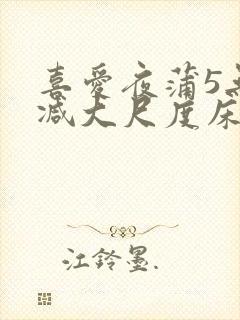 喜爱夜蒲5无
减大尺度床
江铃墨.